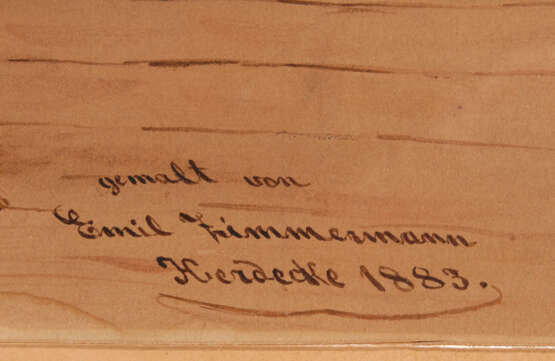 gemalt von
Emil Zimmermann
Herdecke 1883.